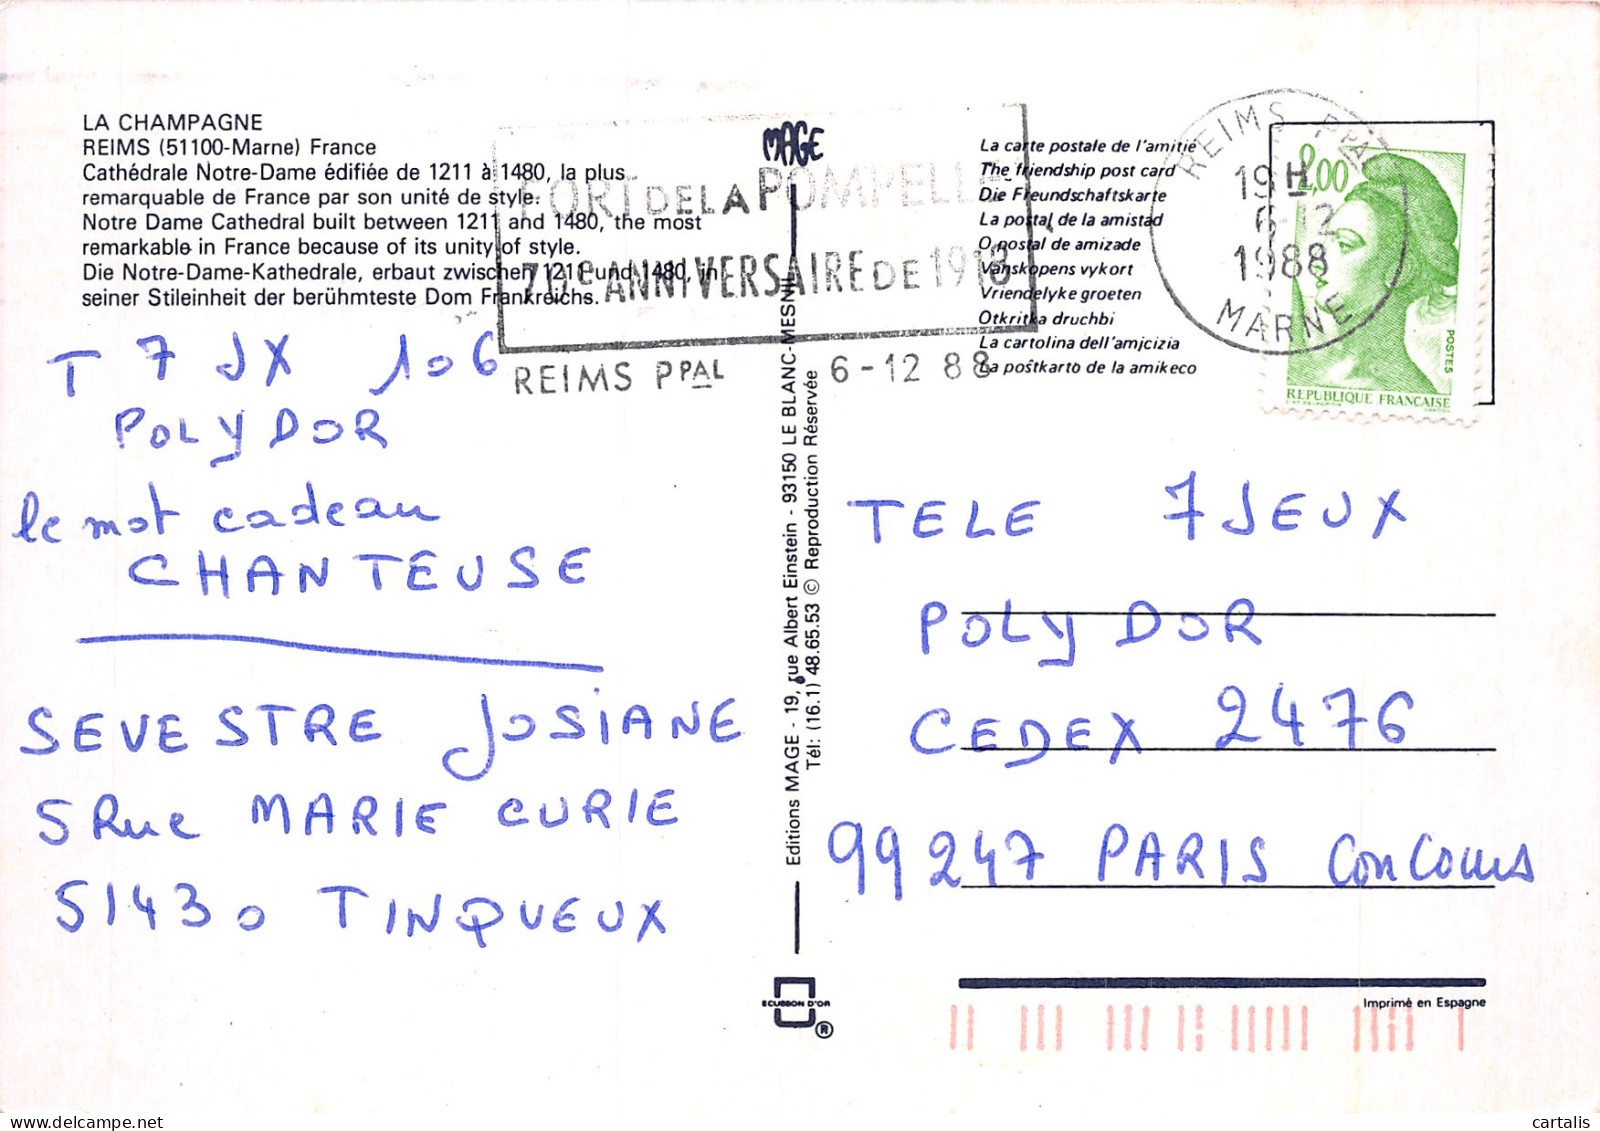 LA CHAMPAGNE
REIMS (51100-Marne) France
Cathédrale Notre-Dame édifiée de 1211 à 1480, la plus
remarquable de France par son unité de style.
Notre Dame Cathedral built between 1211 and 1480, the most
remarkable in France because of its unity of style.
Die Notre-Dame-Kathedrale, erbaut zwischen 1211 und 1480, in
seiner Stileinheit der berühmteste Dom Frankreichs.
MAGE
FORT DE LA POMPELLE
70e ANNIVERSAIRE DE 1918
REIMS PPAL 6-12 88
La carte postale de l'amitié
The friendship post card
Die Freundschaftskarte
La postal de la amistad
O postal de amizade
Vanskopens vykort
Vriendelyke groeten
Otkritka druchbi
La cartolina dell'amicizia
La poŝtkarto de la amikeco
REIMS PPAL
19H
6-12
1988
MARNE
2,00
POSTES
REPUBLIQUE FRANÇAISE
T 7 JX 106
POLYDOR
le mot cadeau
CHANTEUSE
SEVESTRE JOSIANE
5 Rue MARIE CURIE
51430 TINQUEUX
Editions MAGE - 19, rue Albert Einstein - 93150 LE BLANC-MESNIL
Tél: (16.1) 48.65.53 © Reproduction Réservée
TELE 7 JEUX
POLYDOR
CEDEX 2476
99247 PARIS Concours
ECUSSON D'OR
®
Imprimé en Espagne
cartalis
delcampe.net